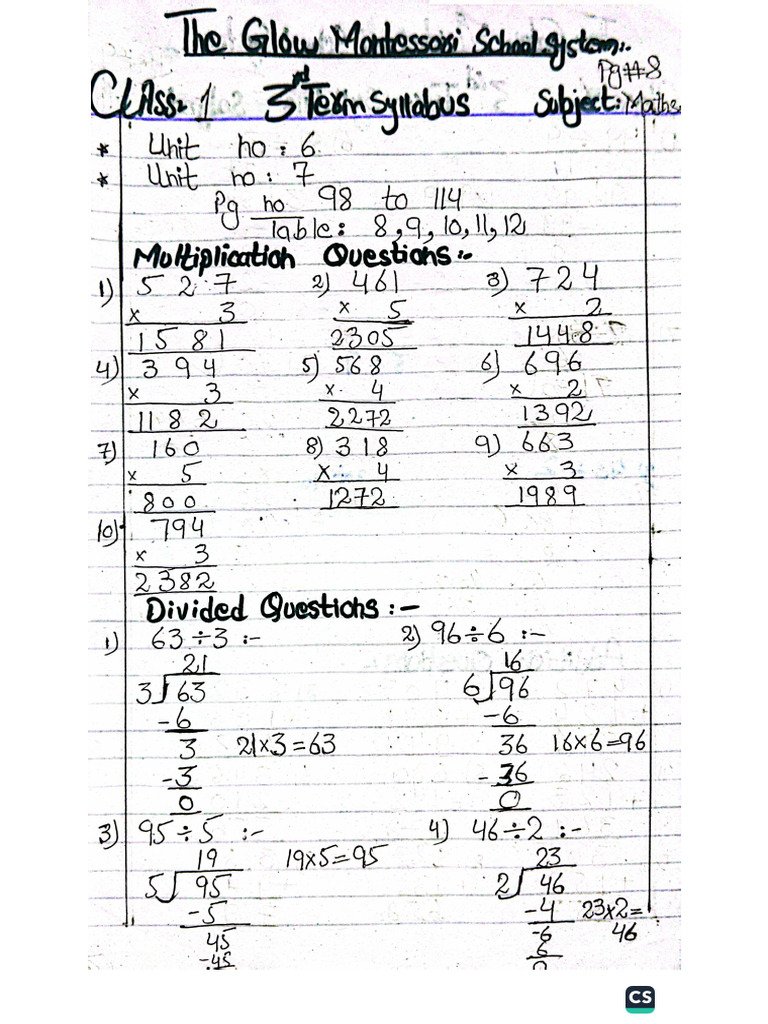 The Glow Montessori School System:-
Pg#8
Class: 1 3rd Term Syllabus Subject: Maths
* Unit no: 6
* Unit no: 7
Pg no 98 to 114
Table: 8, 9, 10, 11, 12
Multiplication Questions:-
1) 527 2) 461 3) 724
x 3 x 5 x 2
1581 2305 1448
4) 394 5) 568 6) 696
x 3 x 4 x 2
1182 2272 1392
7) 160 8) 318 9) 663
x 5 x 4 x 3
800 1272 1989
10) 794
x 3
2382
Divided Questions:-
1) 63÷3:- 2) 96÷6:-
21 16
3 63 6 96
-6 -6
3 21x3=63 36 16x6=96
-3 -36
0 0
3) 95÷5:- 4) 46÷2:-
19 19x5=95 23
5 95 2 46
-5 -4 23x2=
45 -6 46
-45 6
0
CS